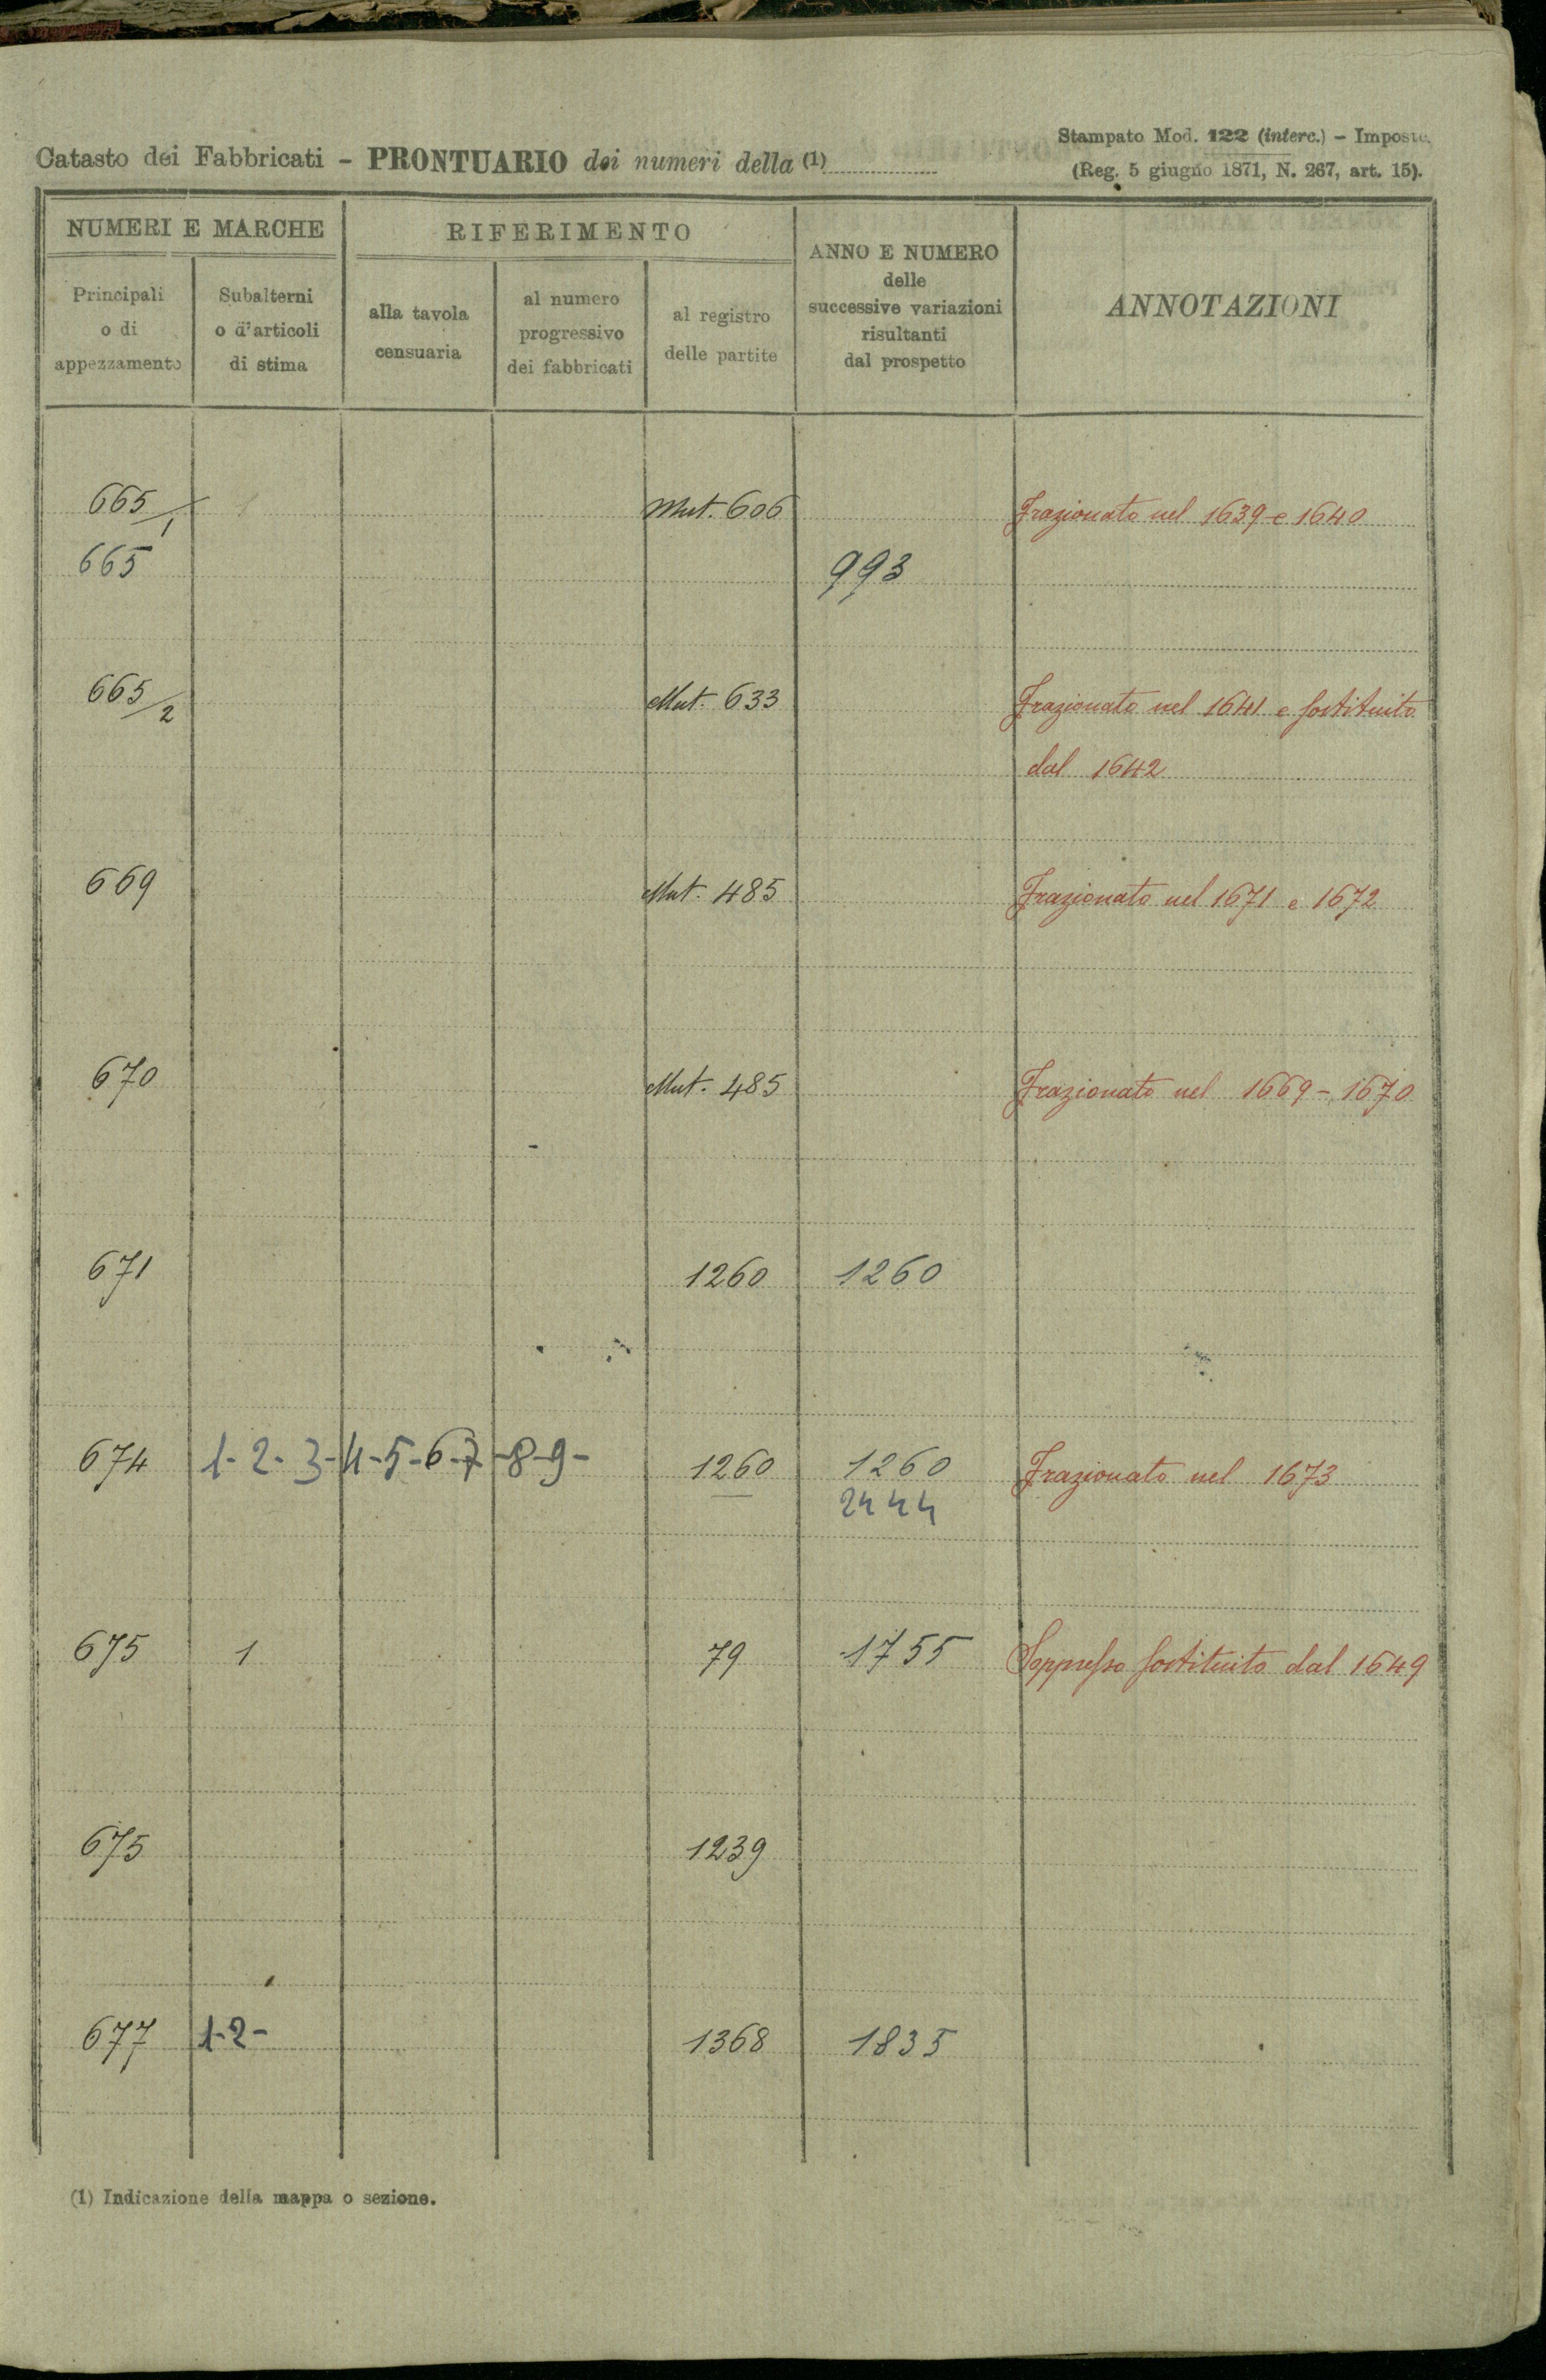 Stampato Mod. 122 (interc.) – Imposte.
Catasto dei Fabbricati – PRONTUARIO dei numeri della (1)
(Reg. 5 giugno 1871, N. 267, art. 15).
NUMERI E MARCHE
RIFERIMENTO
ANNO E NUMERO
delle
successive variazioni
risultanti
dal prospetto
ANNOTAZIONI
Principali
o di
appezzamento
Subalterni
o d'articoli
di stima
alla tavola
censuaria
al numero
progressivo
dei fabbricati
al registro
delle partite
665/1 1 Mut. 606 Frazionato nel 1639 e 1640
665 993
665/2 Mut. 633 Frazionato nel 1641 e sostituito
dal 1642
669 Mut. 485 Frazionato nel 1671 e 1672
670 Mut. 485 Frazionato nel 1669 – 1670
671 1260 1260
674 1-2-3-4-5-6-7-8-9- 1260 1260 Frazionato nel 1673
2444
675 1 79 1755 Soppresso sostituito dal 1649
675 1239
677 1-2- 1368 1835
(1) Indicazione della mappa o sezione.